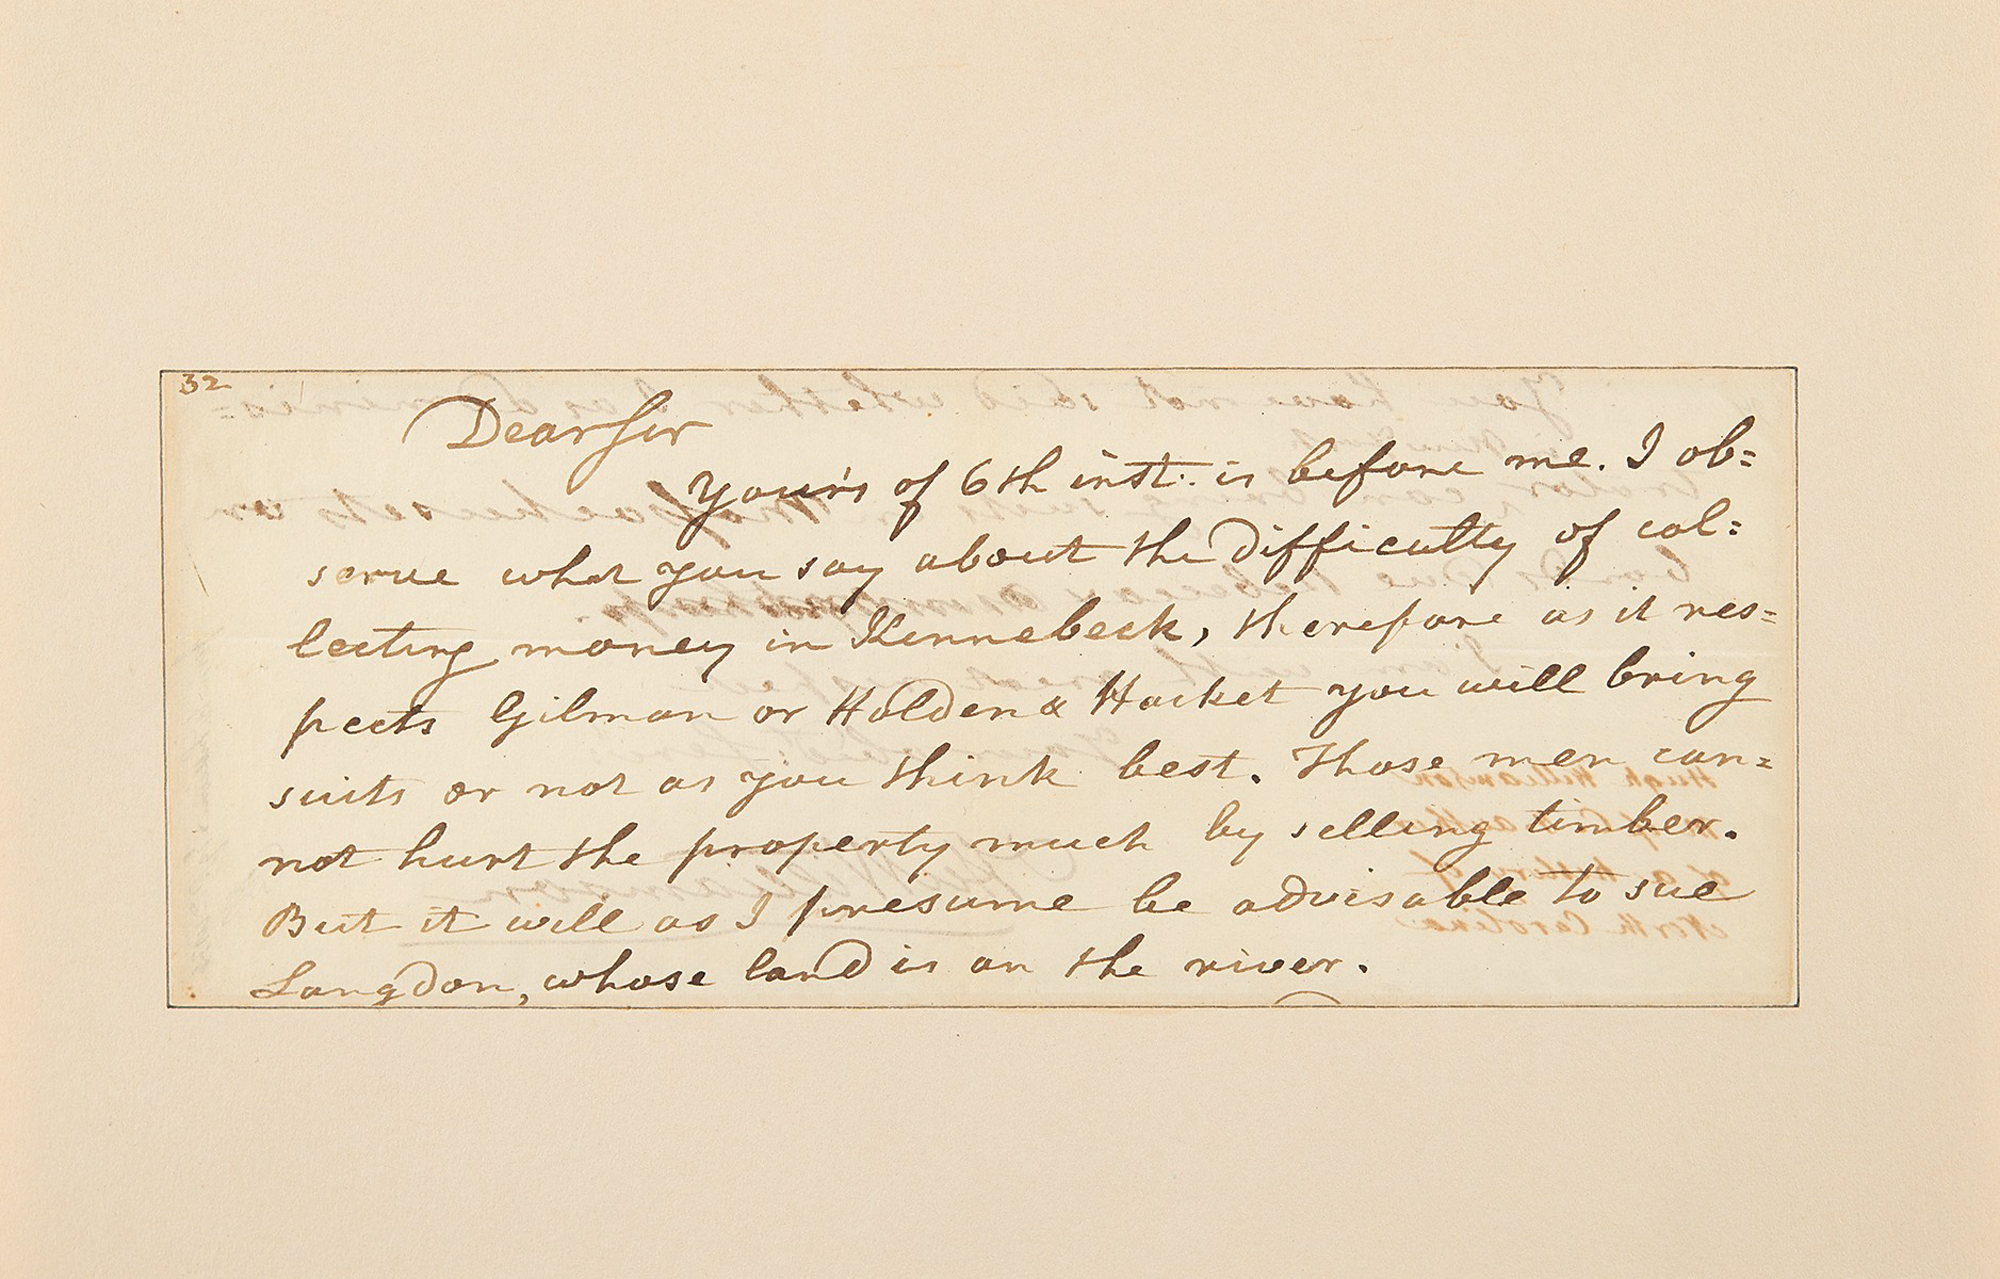 32
Dear Sir
Your's of 6th inst: is before me. I ob=
serve what you say about the difficulty of col=
lecting money in Kennebeck, therefore as it res=
pects Gilman or Holden & Hacket you will bring
suits or not as you think best. Those men can=
not hurt the property much by selling timber.
But it will as I presume be advisable to sue
Langdon, whose land is on the river.